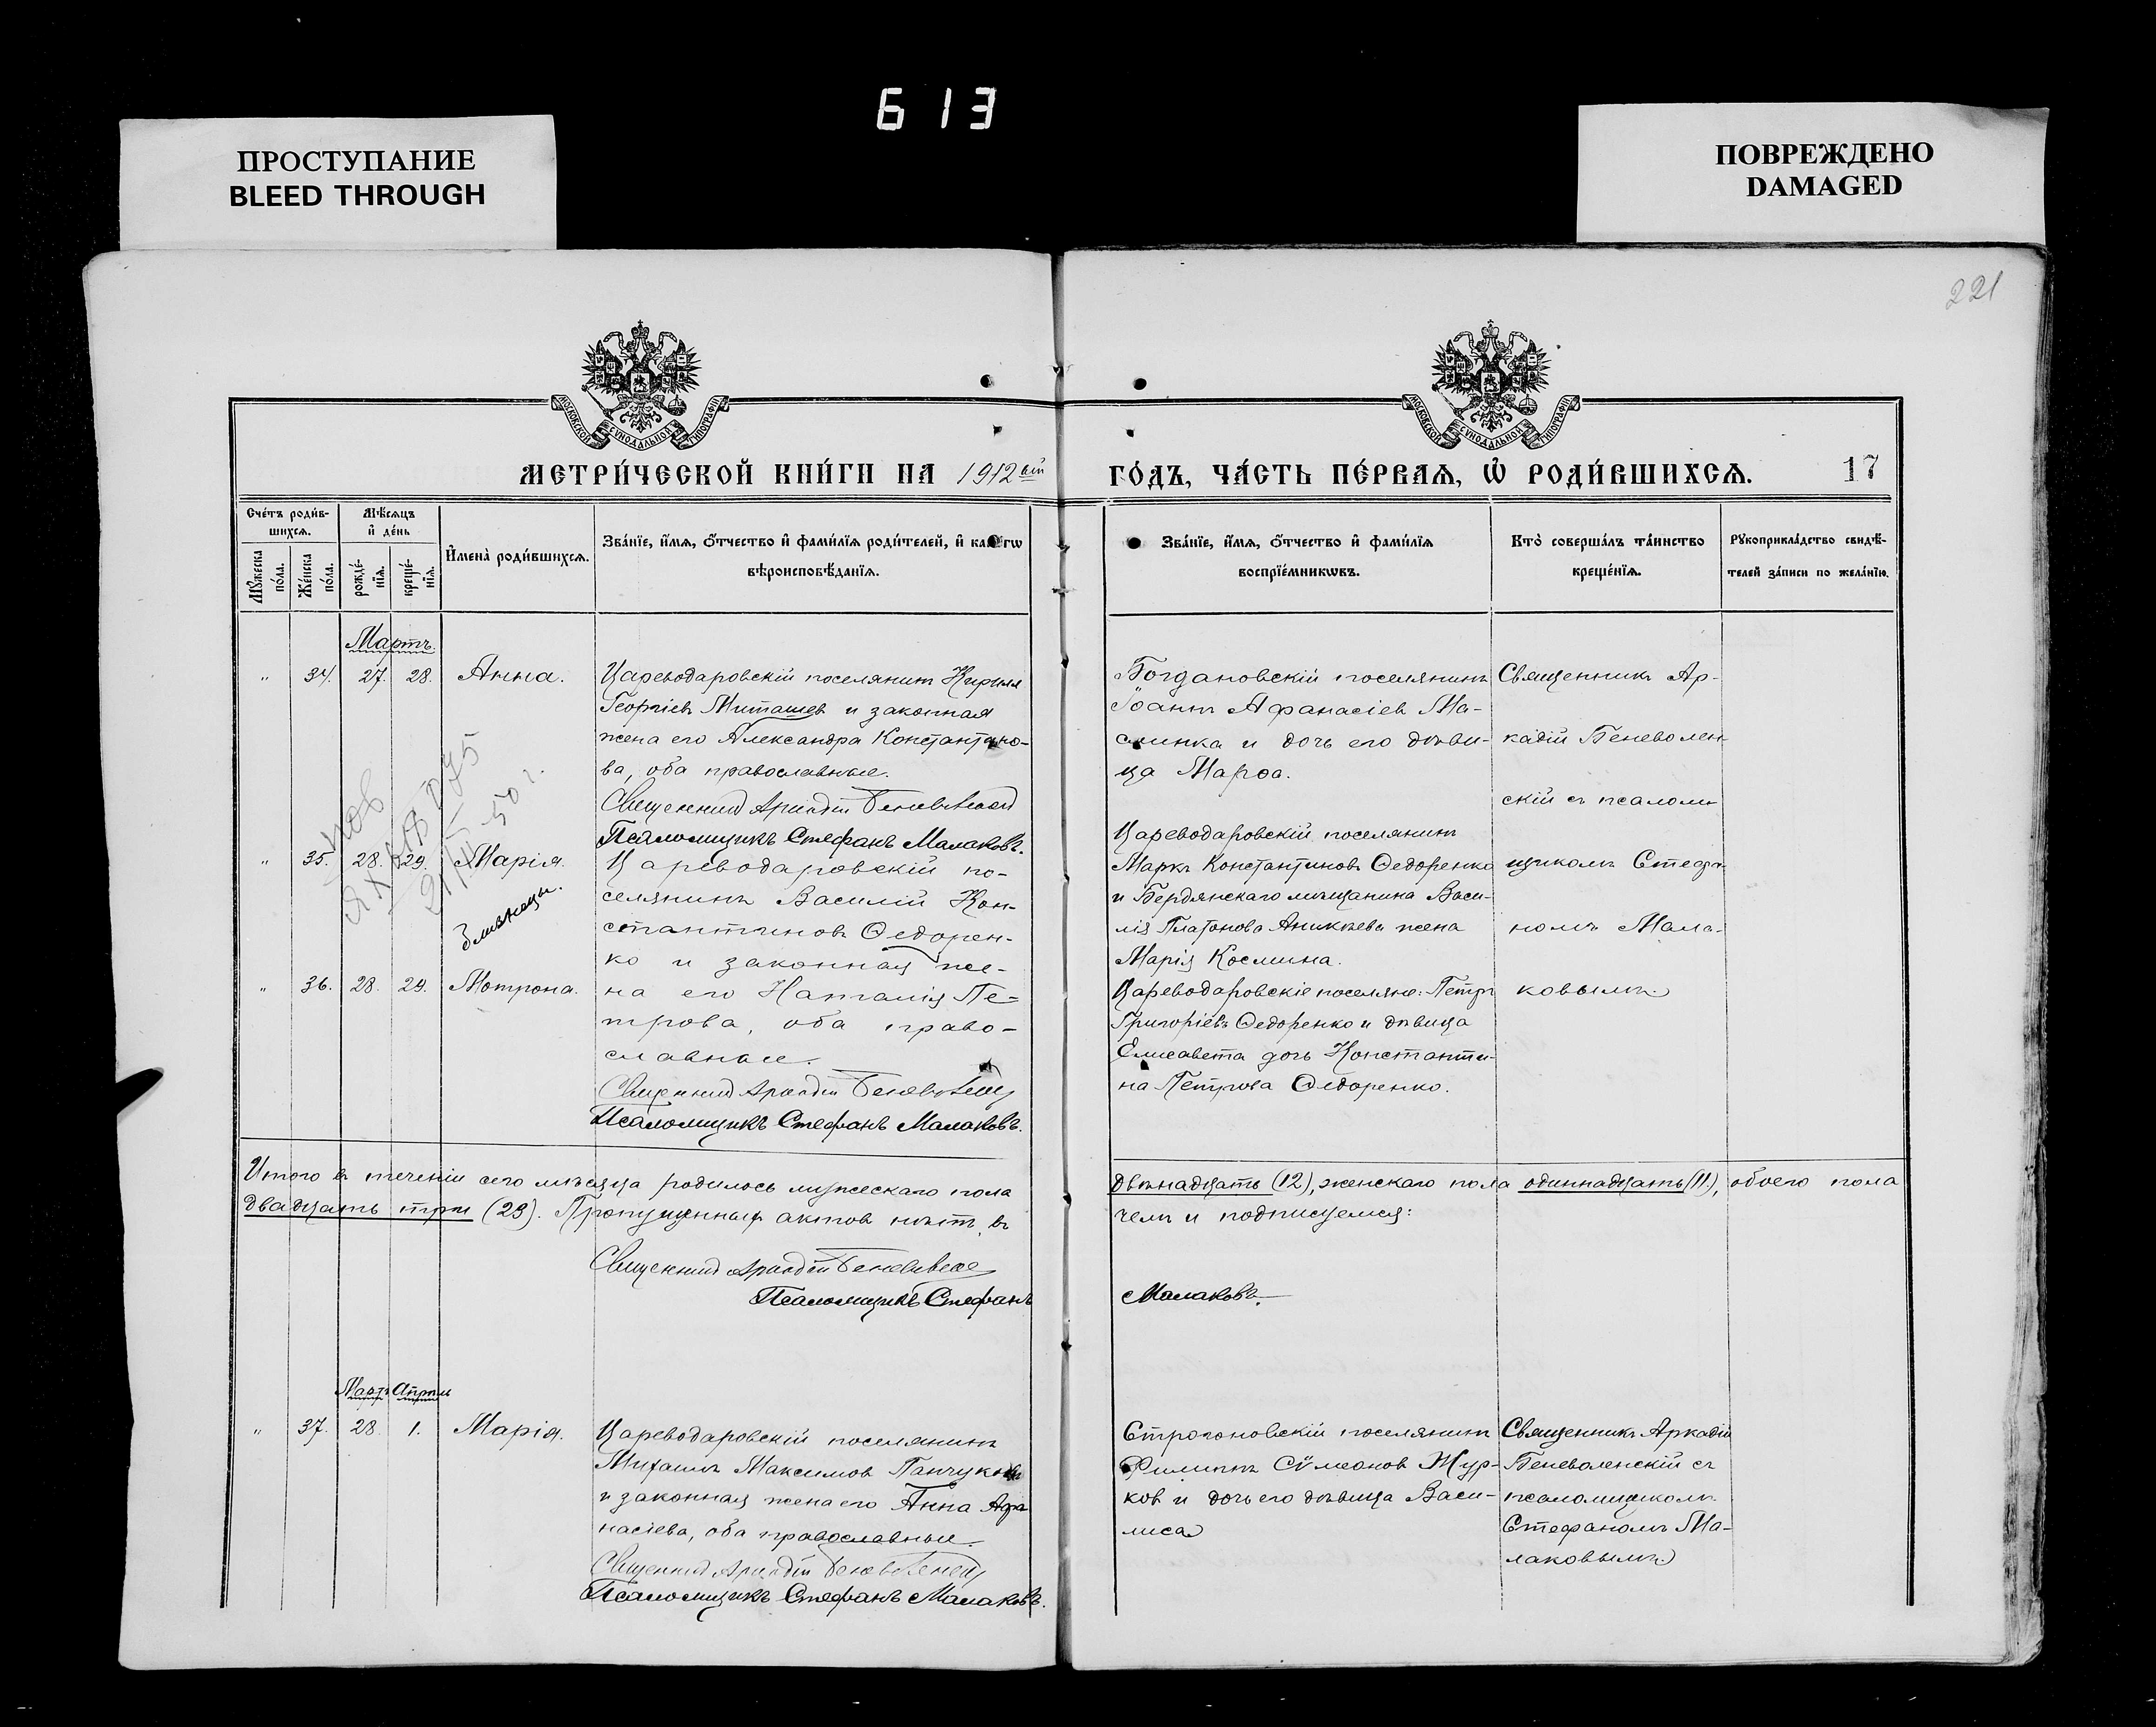 613
ПРОСТУПАНИЕ
BLEED THROUGH
ПОВРЕЖДЕНО
DAMAGED
221
МОСКОВСКОЙ СУНОДАЛЬНОЙ ТИПОГРАФІИ
МОСКОВСКОЙ СУНОДАЛЬНОЙ ТИПОГРАФІИ
МЕТРИ́ЧЕСКОЙ КНИ́ГИ НА 1912 ый
ГО́ДЪ, ЧА́СТЬ ПЕ́РВАѦ, Ѡ҆ РОДИ́ВШИХСѦ.
17
Сче́тъ роди́в-
шихсѧ.
Мꙋ́жеска по́ла.
Же́нска по́ла.
Мѣ́сѧцъ
и҆ де́нь
рожде́-нїѧ.
креще́-нїѧ.
И҆мена̀ роди́вшихсѧ.
Зва́нїе, и҆́мѧ, ѻ҆́тчество и҆ фами́лїѧ роди́телей, и҆ како́гѡ
вѣроисповѣ́данїѧ.
Зва́нїе, и҆́мѧ, ѻ҆́тчество и҆ фами́лїѧ
воспрїе́мникѡвъ.
Кто̀ соверша́лъ та́инство
креще́нїѧ.
Рꙋкоприкла́дство свидѣ́-
телей за́писи по жела́нїю.
Мартъ.
" 34. 27. 28. Анна.
Цареводаровскій поселянинъ Кириллъ
Георгіевъ Миташев и законная
жена его Александра Константино-
ва, оба православные.
Священник Аркадій Беневоленскій
Псаломщикъ Стефанъ Малаковъ.
Богдановскій поселянинъ
Іоаннъ Афанасіев Ма-
слинка и дочь его дѣви-
ца Марѳа.
Священникъ Ар-
кадій Беневолен-
скій съ псалом-
щикомъ Стефа-
номъ Мала-
ковымъ.
" 35. 28. 29. Марія.
близнецы.
" 36. 28. 29. Мотрона.
Цареводаровскій по-
селянинъ Василій Кон-
стантиновъ Ѳедорен-
ко и законная же-
на его Наталія Пе-
трова, оба право-
славные.
Священник Аркадій Беневоленскій
Псаломщикъ Стефанъ Малаковъ.
Цареводаровскій поселянинъ
Маркъ Константиновъ Ѳедоренко
и Бердянскаго мѣщанина Васи-
лія Платонова Аникѣева жена
Марія Космина.
Цареводаровскіе поселяне: Петръ
Григоріевъ Ѳедоренко и дѣвица
Елисавета дочь Константи-
на Петрова Ѳедоренко.
Итого въ теченіи сего мѣсяца родилось мужескаго пола
двѣнадцать (12), женскаго пола одиннадцать (11), обоего пола
двадцать три (23). Пропущенныхъ актовъ нѣтъ, въ
чемъ и подписуемся:
Священник Аркадій Беневоленскій
Псаломщикъ Стефанъ
Малаковъ.
Мартъ Апрѣль
" 37. 28. 1. Марія.
Цареводаровскій поселянинъ
Михаилъ Максимов Панчуков
и законная жена его Анна Афа
насіева, оба православные.
Священник Аркадій Беневоленскій
Псаломщикъ Стефанъ Малаковъ.
Строгоновскій поселянинъ
Филиппъ Сѵмеонов Жур-
ков и дочь его дѣвица Васи-
лиса
Священникъ Аркадій
Беневоленскій съ
псаломщикомъ
Стефаномъ Ма-
лаковымъ